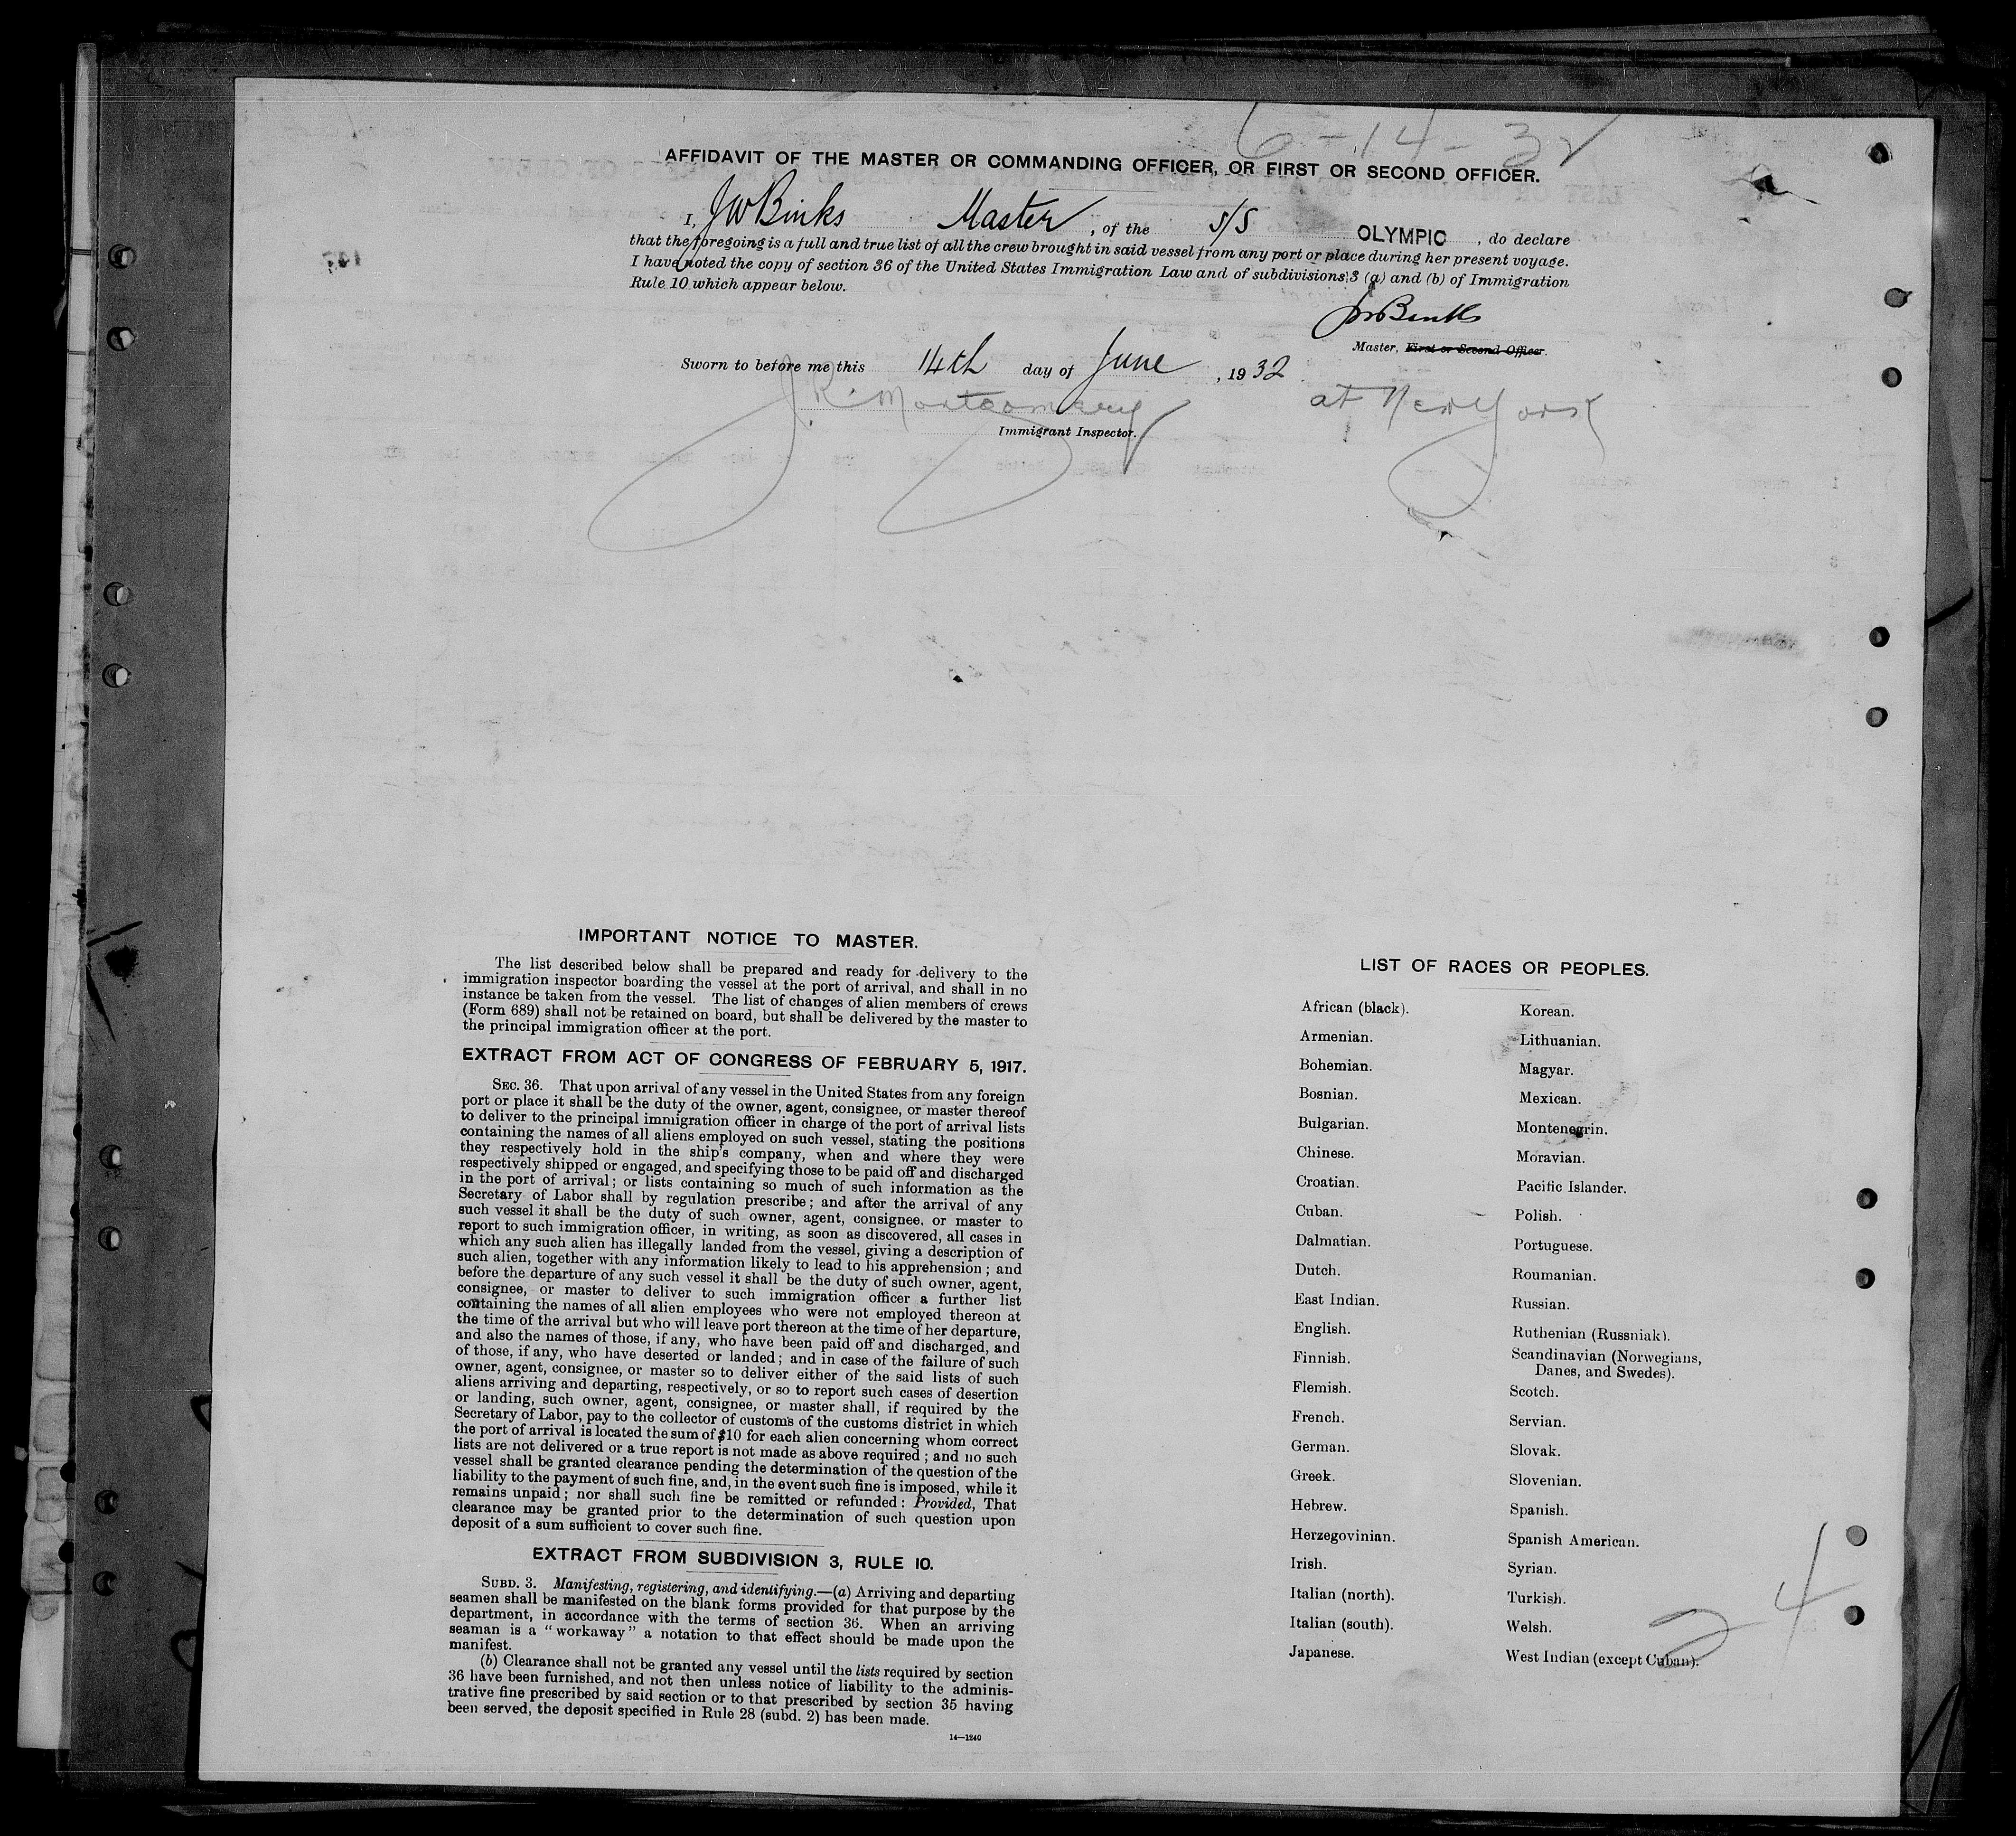 6-14-32
AFFIDAVIT OF THE MASTER OR COMMANDING OFFICER, OR FIRST OR SECOND OFFICER.
I, JW Binks Master, of the S/S OLYMPIC, do declare
that the foregoing is a full and true list of all the crew brought in said vessel from any port or place during her present voyage.
I have noted the copy of section 36 of the United States Immigration Law and of subdivisions 3 (a) and (b) of Immigration
Rule 10 which appear below.
JW Binks
Master, First or Second Officer.
Sworn to before me this 14th day of June, 1932
J. R. Montgomery at New York
Immigrant Inspector.
IMPORTANT NOTICE TO MASTER.
The list described below shall be prepared and ready for delivery to the
immigration inspector boarding the vessel at the port of arrival, and shall in no
instance be taken from the vessel. The list of changes of alien members of crews
(Form 689) shall not be retained on board, but shall be delivered by the master to
the principal immigration officer at the port.
EXTRACT FROM ACT OF CONGRESS OF FEBRUARY 5, 1917.
SEC. 36. That upon arrival of any vessel in the United States from any foreign
port or place it shall be the duty of the owner, agent, consignee, or master thereof
to deliver to the principal immigration officer in charge of the port of arrival lists
containing the names of all aliens employed on such vessel, stating the positions
they respectively hold in the ship's company, when and where they were
respectively shipped or engaged, and specifying those to be paid off and discharged
in the port of arrival; or lists containing so much of such information as the
Secretary of Labor shall by regulation prescribe; and after the arrival of any
such vessel it shall be the duty of such owner, agent, consignee, or master to
report to such immigration officer, in writing, as soon as discovered, all cases in
which any such alien has illegally landed from the vessel, giving a description of
such alien, together with any information likely to lead to his apprehension; and
before the departure of any such vessel it shall be the duty of such owner, agent,
consignee, or master to deliver to such immigration officer a further list
containing the names of all alien employees who were not employed thereon at
the time of the arrival but who will leave port thereon at the time of her departure,
and also the names of those, if any, who have been paid off and discharged, and
of those, if any, who have deserted or landed; and in case of the failure of such
owner, agent, consignee, or master so to deliver either of the said lists of such
aliens arriving and departing, respectively, or so to report such cases of desertion
or landing, such owner, agent, consignee, or master shall, if required by the
Secretary of Labor, pay to the collector of customs of the customs district in which
the port of arrival is located the sum of $10 for each alien concerning whom correct
lists are not delivered or a true report is not made as above required; and no such
vessel shall be granted clearance pending the determination of the question of the
liability to the payment of such fine, and, in the event such fine is imposed, while it
remains unpaid; nor shall such fine be remitted or refunded: Provided, That
clearance may be granted prior to the determination of such question upon
deposit of a sum sufficient to cover such fine.
EXTRACT FROM SUBDIVISION 3, RULE 10.
SUBD. 3. Manifesting, registering, and identifying.—(a) Arriving and departing
seamen shall be manifested on the blank forms provided for that purpose by the
department, in accordance with the terms of section 36. When an arriving
seaman is a "workaway" a notation to that effect should be made upon the
manifest.
(b) Clearance shall not be granted any vessel until the lists required by section
36 have been furnished, and not then unless notice of liability to the adminis-
trative fine prescribed by said section or to that prescribed by section 35 having
been served, the deposit specified in Rule 28 (subd. 2) has been made.
14—1240
LIST OF RACES OR PEOPLES.
African (black).
Armenian.
Bohemian.
Bosnian.
Bulgarian.
Chinese.
Croatian.
Cuban.
Dalmatian.
Dutch.
East Indian.
English.
Finnish.
Flemish.
French.
German.
Greek.
Hebrew.
Herzegovinian.
Irish.
Italian (north).
Italian (south).
Japanese.
Korean.
Lithuanian.
Magyar.
Mexican.
Montenegrin.
Moravian.
Pacific Islander.
Polish.
Portuguese.
Roumanian.
Russian.
Ruthenian (Russniak).
Scandinavian (Norwegians,
Danes, and Swedes).
Scotch.
Servian.
Slovak.
Slovenian.
Spanish.
Spanish American.
Syrian.
Turkish.
Welsh.
West Indian (except Cuban).
24